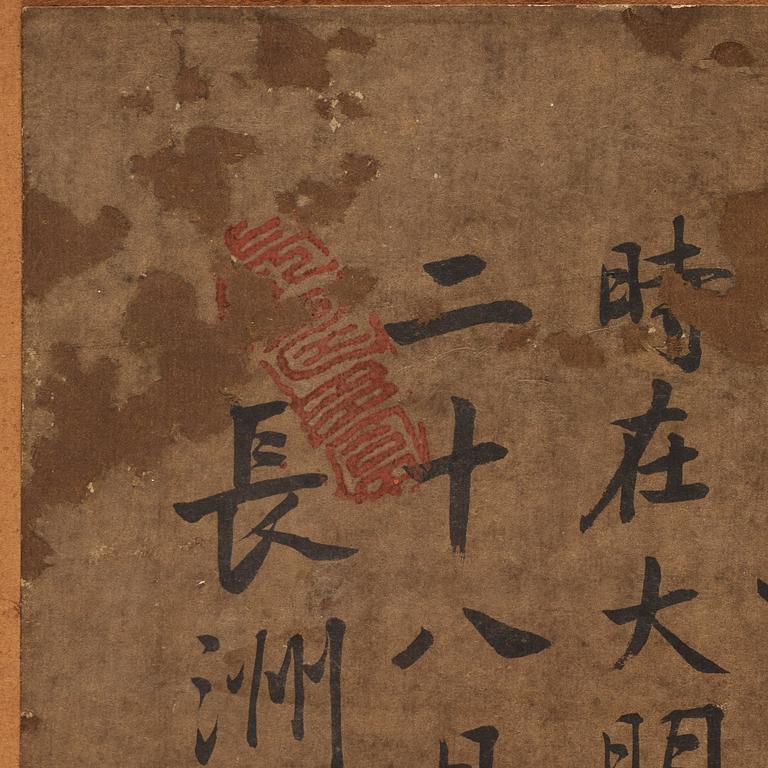 時在大明
二十八日
長洲